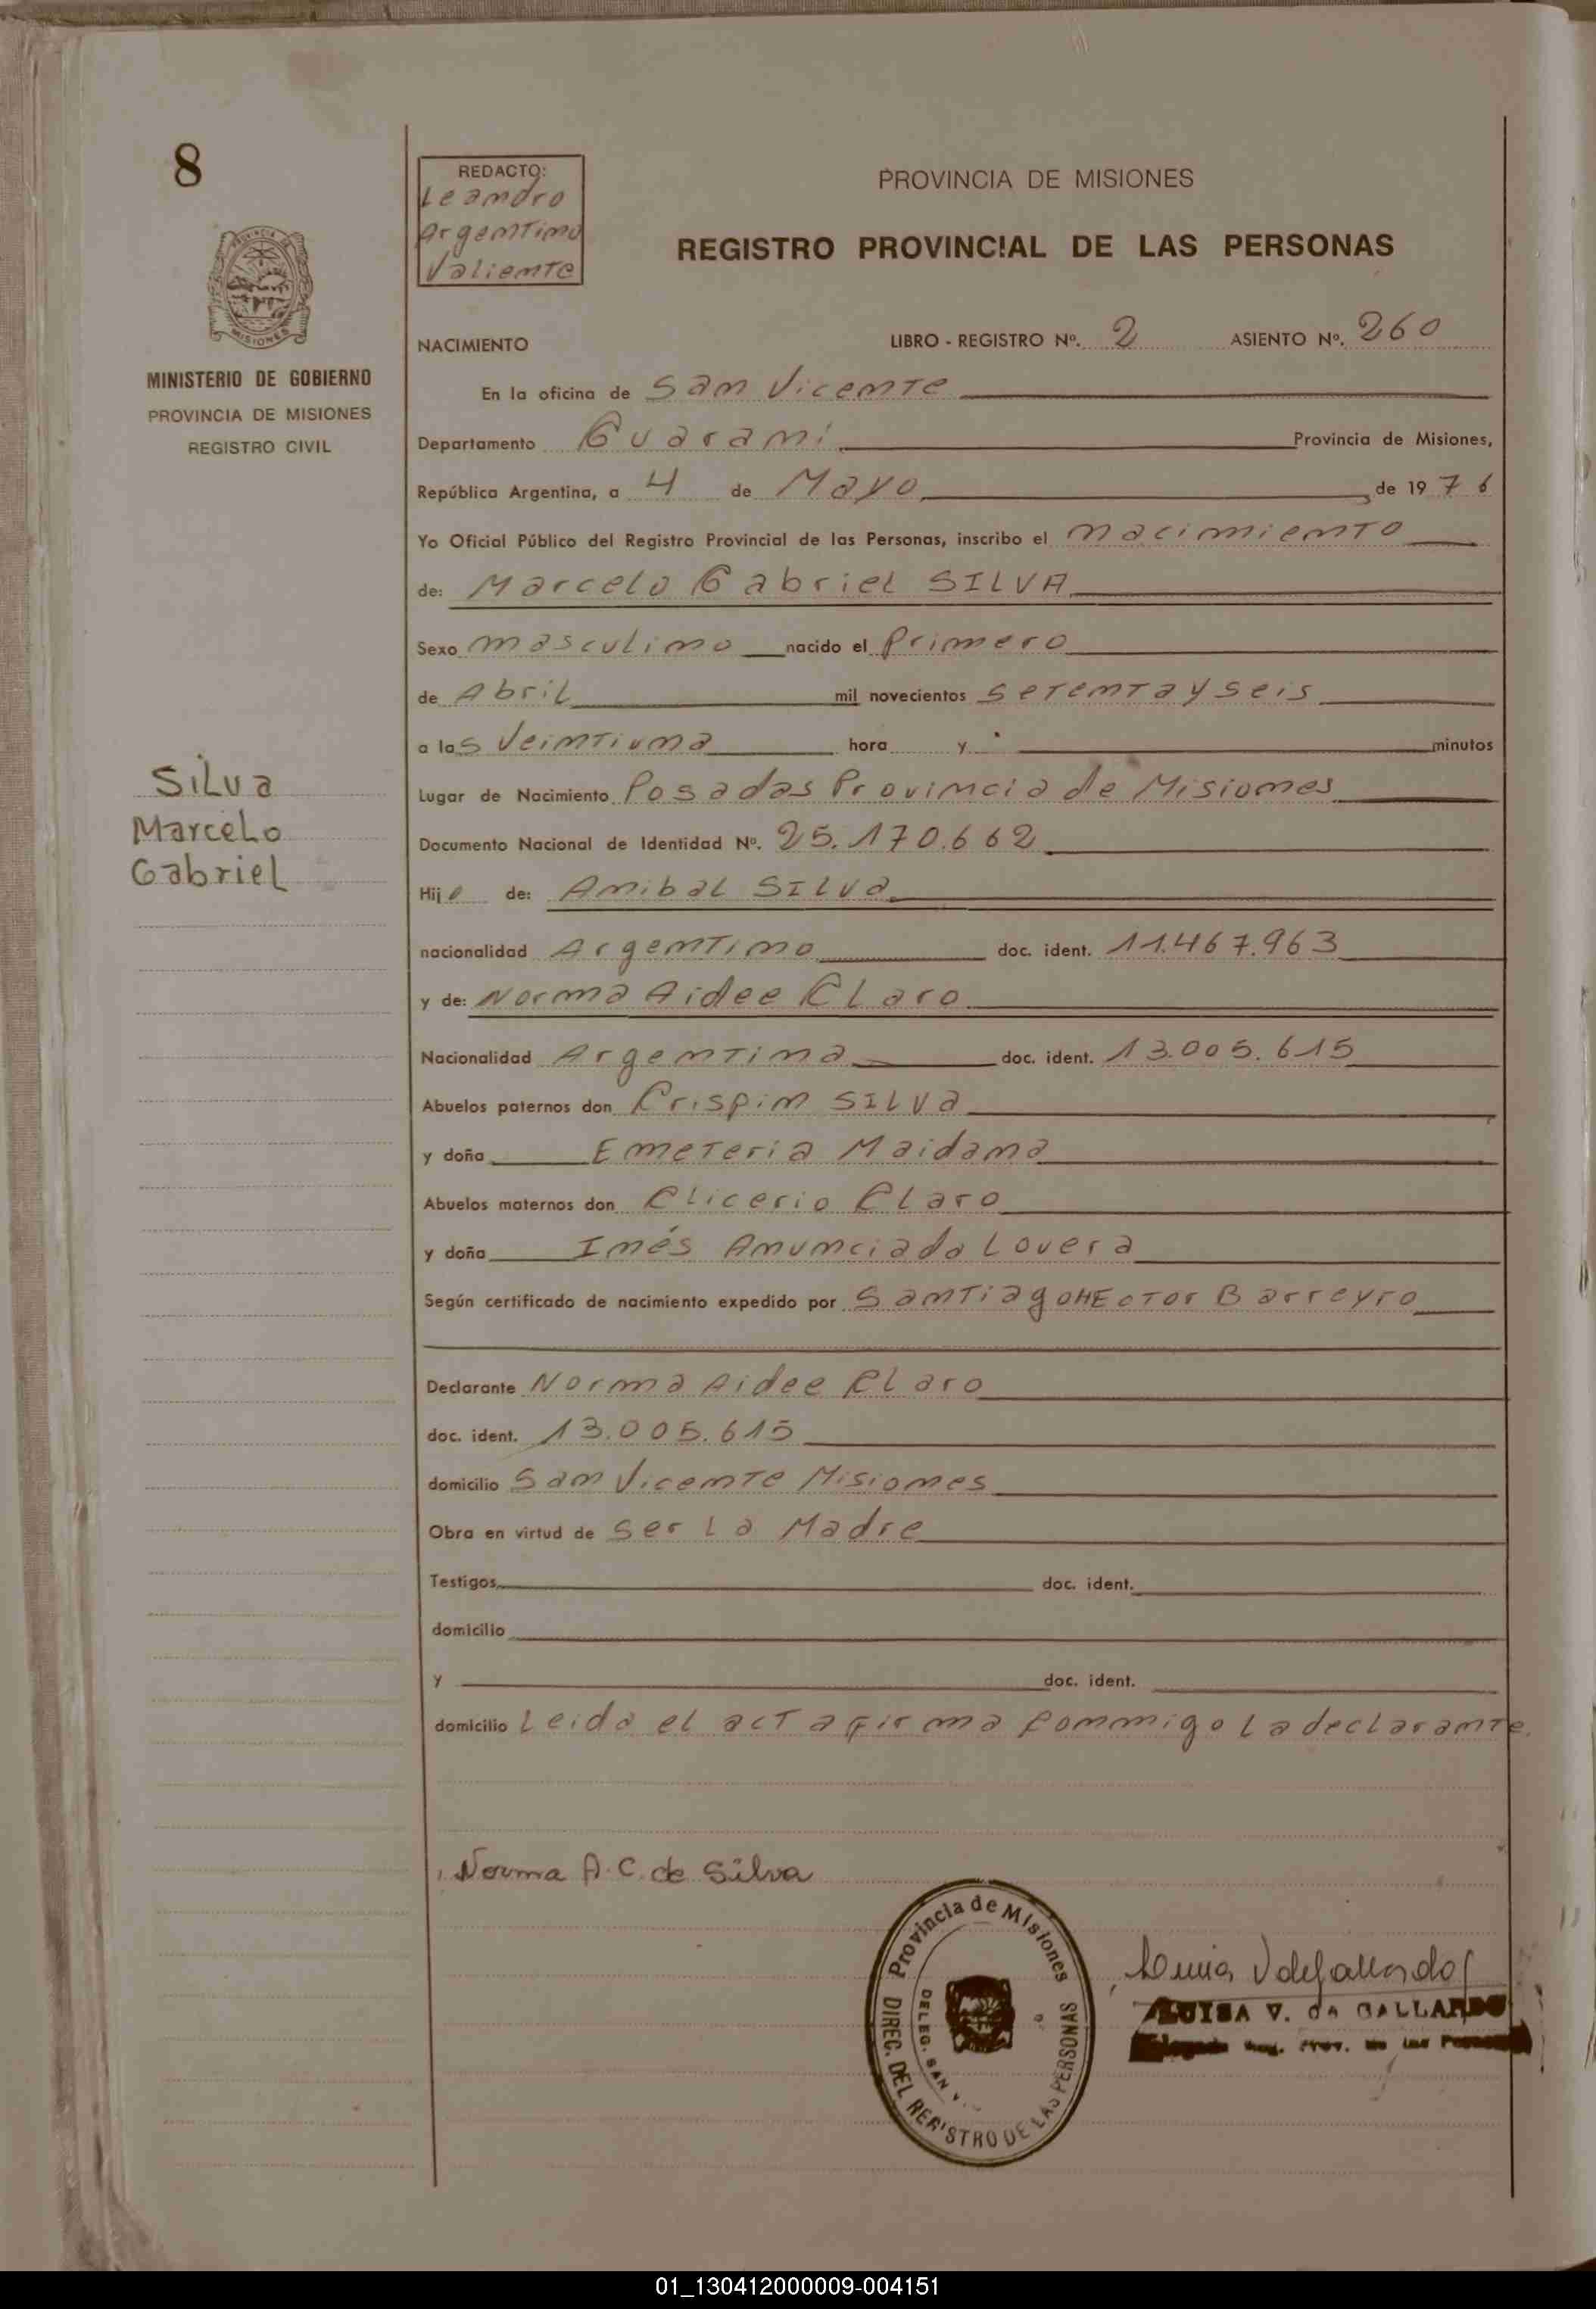 8
REDACTO:
Leandro
Argentino
Valiente
PROVINCIA DE MISIONES
REGISTRO PROVINCIAL DE LAS PERSONAS
MINISTERIO DE GOBIERNO
PROVINCIA DE MISIONES
REGISTRO CIVIL
NACIMIENTO LIBRO - REGISTRO Nº. 2 ASIENTO Nº. 260
En la oficina de San Vicente
Departamento Guarani Provincia de Misiones,
República Argentina, a 4 de Mayo de 1976
Yo Oficial Público del Registro Provincial de las Personas, inscribo el nacimiento
de: Marcelo Gabriel SILVA
Sexo masculino nacido el Primero
de Abril mil novecientos setenta y seis
a las Veintiuna hora y minutos
Silva
Marcelo
Gabriel
Lugar de Nacimiento Posadas Provincia de Misiones
Documento Nacional de Identidad Nº. 25.170.662
Hijo de: Anibal SILVa
nacionalidad Argentino doc. ident. 11.467.963
y de: Norma Aidee Claro
Nacionalidad Argentina doc. ident. 13.005.615
Abuelos paternos don Crispin SILVa
y doña Emeteria Maidana
Abuelos maternos don Clicerio Claro
y doña Inés Anunciada Lovera
Según certificado de nacimiento expedido por Santiago HEctor Barreyro
Declarante Norma Aidee Claro
doc. ident. 13.005.615
domicilio San Vicente Misiones
Obra en virtud de ser La Madre
Testigos doc. ident.
domicilio
y doc. ident.
domicilio Leida el acta firma conmigo La declarante.
Norma A. C. de Silva
Provincia de Misiones
DIREC. DEL REGISTRO DE LAS PERSONAS
DELEG. SAN V.
LUISA V. de GALLARDO
01_130412000009-004151